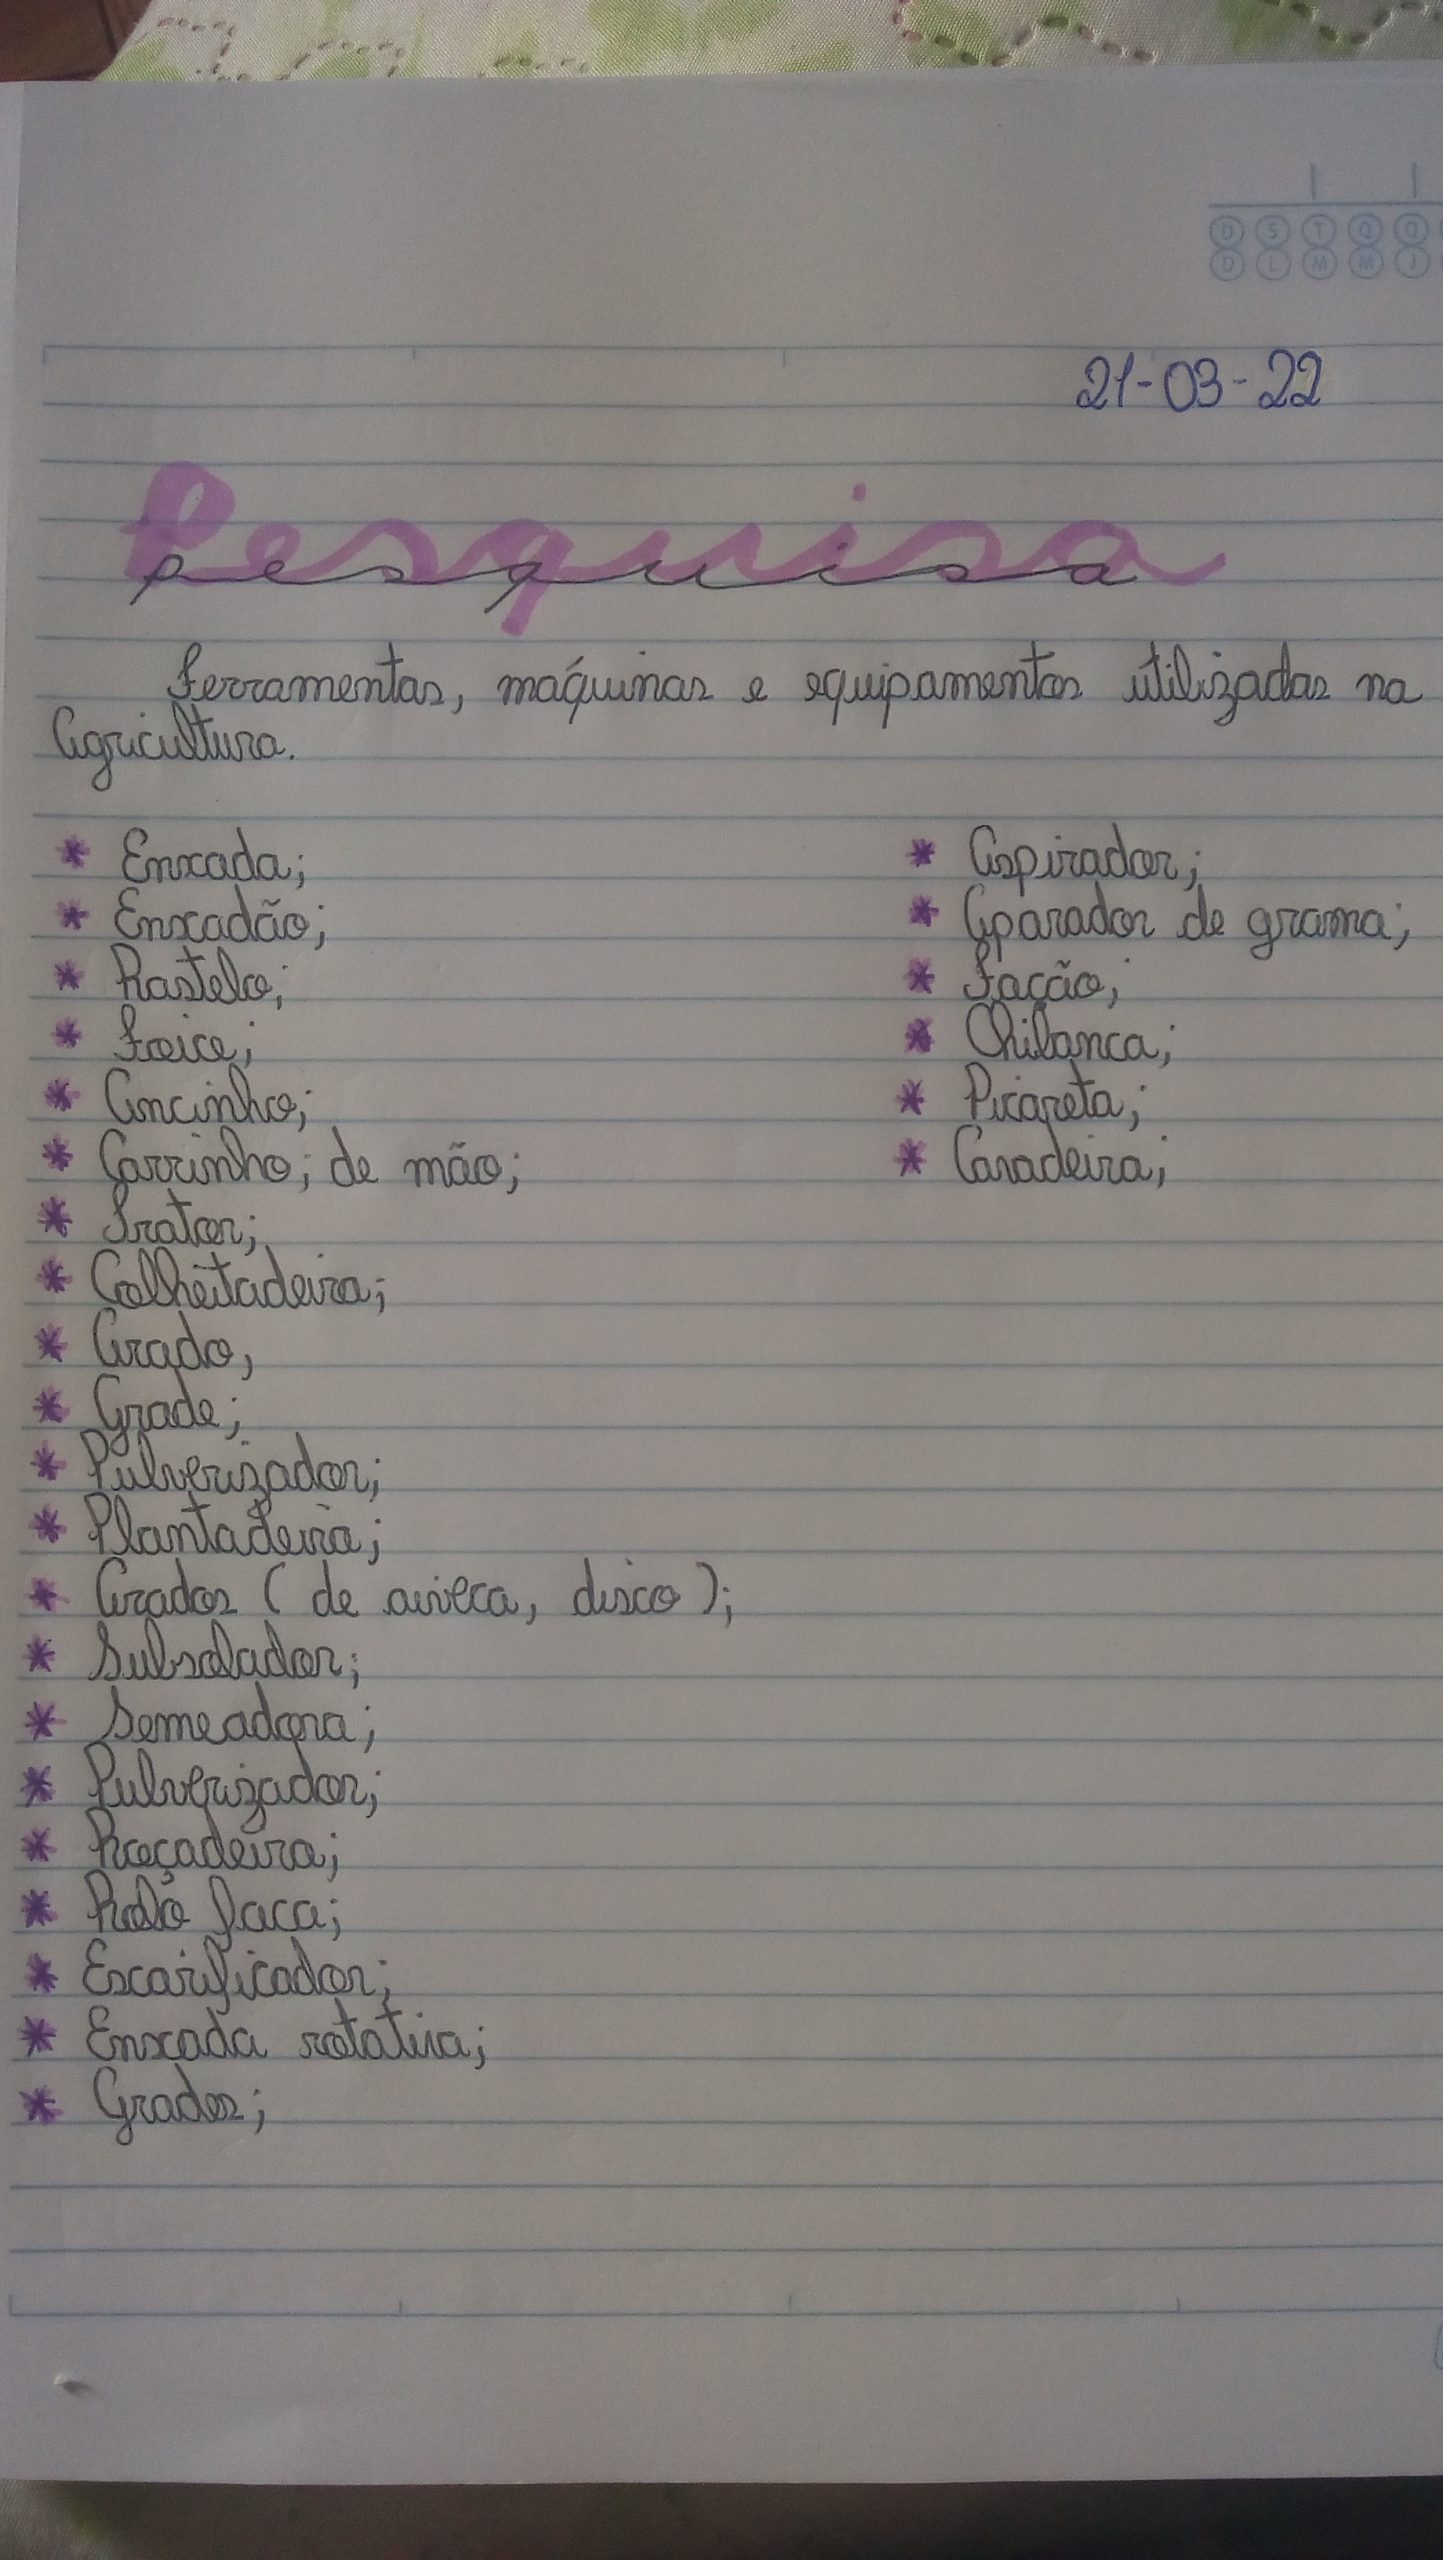 D S T Q Q
D L M M J
21-03-22
Pesquisa
pesquisa
Ferramentas, máquinas e equipamentos utilizadas na
Agricultura.
* Enxada;
* Enxadão;
* Rastelo;
* Foice;
* Ancinho;
* Carrinho; de mão;
* Trator;
* Colheitadeira;
* Arado,
* Grade;
* Pulverizador;
* Plantadeira;
* Arados (de aiveca, disco);
* Subsolador;
* Semeadora;
* Pulverizador;
* Roçadeira;
* Rolo faca;
* Escarificador;
* Enxada rotativa;
* Grades;
* Aspirador;
* Aparador de grama;
* Facão;
* Chibanca;
* Picareta;
* Cavadeira;